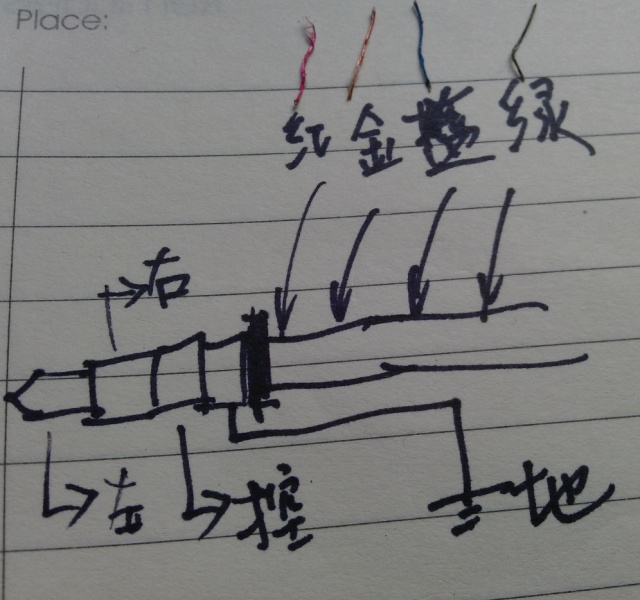 Place:
红 金 蓝 绿
右
左 控 地